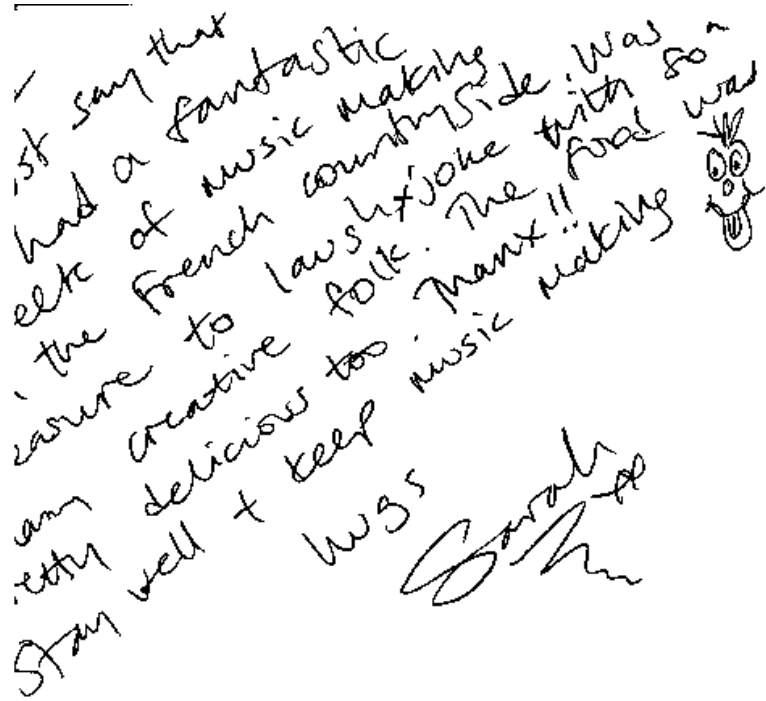 st say that
had a fantastic
eek of music making
the French countryside. Was
easure to laugh + joke with so
any creative folk. The food was
retty delicious too. Thanx!!
Stay well + keep music making
hugs
Sarah